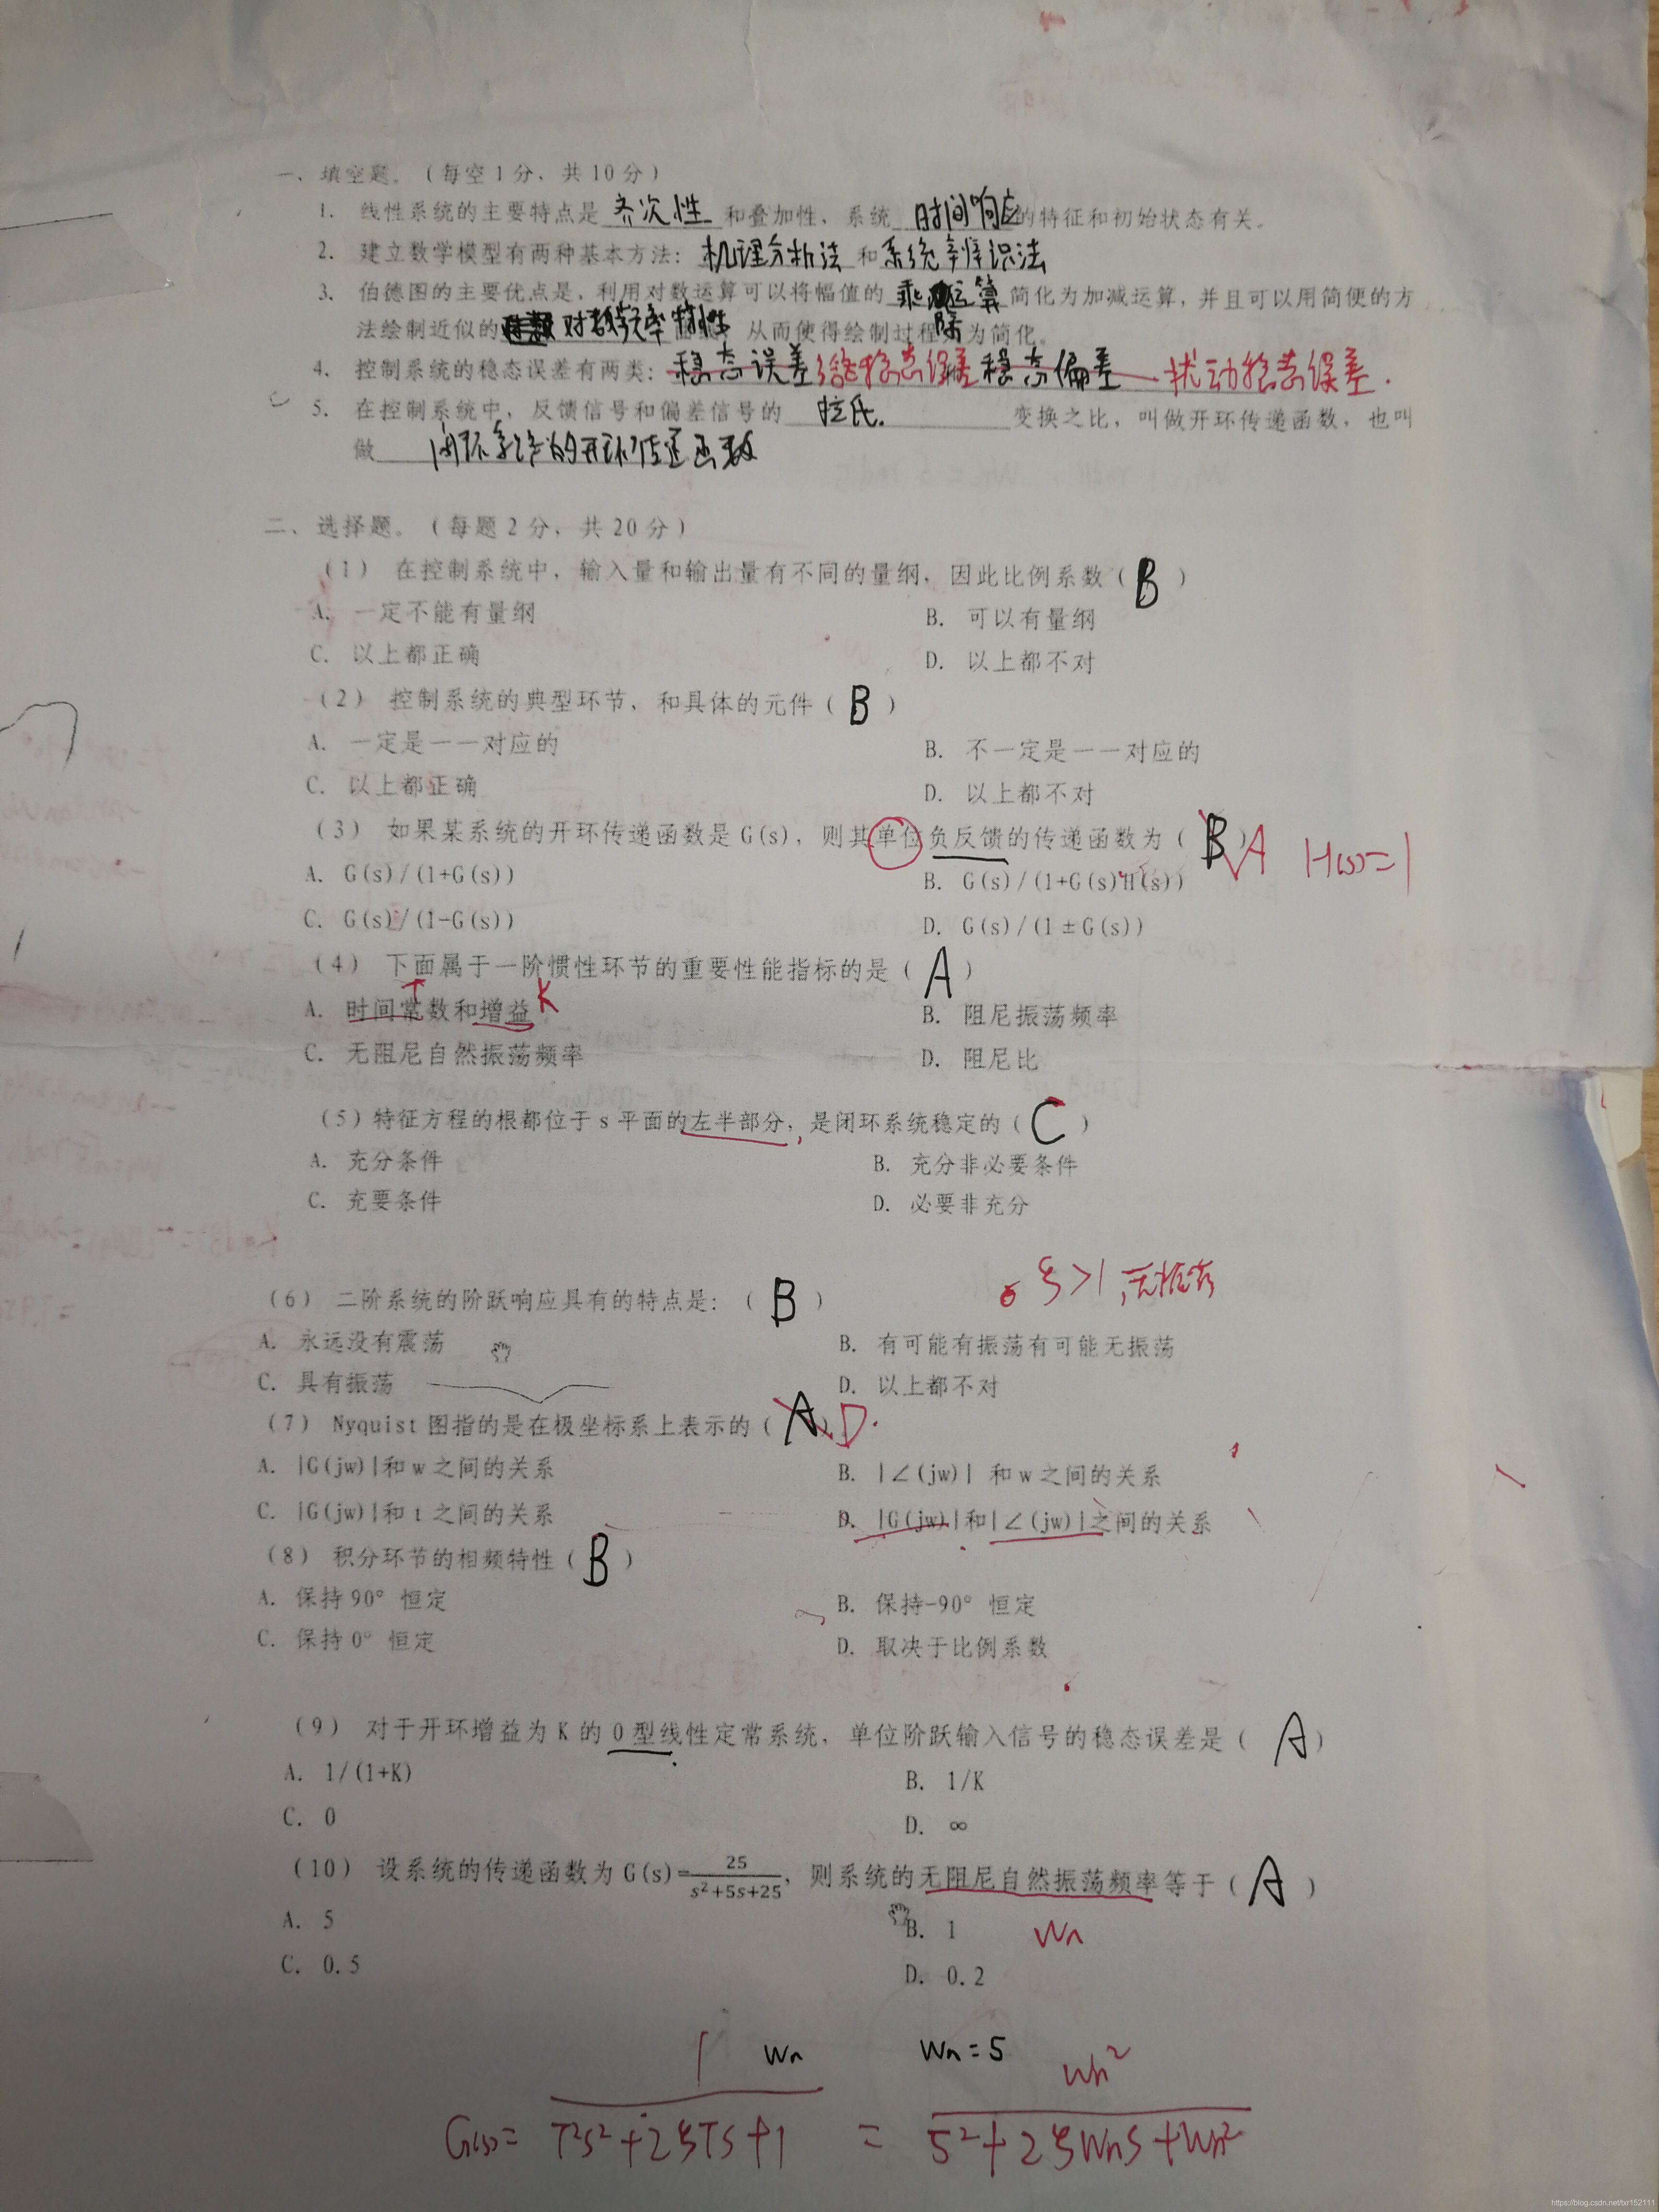 一、填空题。（每空1分，共10分）
1. 线性系统的主要特点是 齐次性 和叠加性、系统 时间响应 的特征和初始状态有关。
2. 建立数学模型有两种基本方法：机理分析法 和 系统辨识法
3. 伯德图的主要优点是，利用对数运算可以将幅值的 乘除运算 简化为加减运算，并且可以用简便的方
法绘制近似的 对数频率特性 从而使得绘制过程 为简化。
4. 控制系统的稳态误差有两类：稳态误差 给定稳态误差 稳态偏差 扰动稳态误差.
5. 在控制系统中，反馈信号和偏差信号的 拉氏. 变换之比，叫做开环传递函数，也叫
做 闭环系统的开环传递函数
二、选择题。（每题2分，共20分）
（1） 在控制系统中，输入量和输出量有不同的量纲，因此比例系数（ B ）
A. 一定不能有量纲 B. 可以有量纲
C. 以上都正确 D. 以上都不对
（2） 控制系统的典型环节，和具体的元件（ B ）
A. 一定是一一对应的 B. 不一定是一一对应的
C. 以上都正确 D. 以上都不对
（3） 如果某系统的开环传递函数是G(s)，则其单位负反馈的传递函数为（ B ） A H(s)=1
A. G(s)/(1+G(s)) B. G(s)/(1+G(s)H(s))
C. G(s)/(1-G(s)) D. G(s)/(1±G(s))
（4） 下面属于一阶惯性环节的重要性能指标的是（ A ）
A. 时间常数和增益 T K B. 阻尼振荡频率
C. 无阻尼自然振荡频率 D. 阻尼比
（5）特征方程的根都位于 s 平面的左半部分，是闭环系统稳定的（ C ）
A. 充分条件 B. 充分非必要条件
C. 充要条件 D. 必要非充分
ξ>1,无振荡
（6） 二阶系统的阶跃响应具有的特点是：（ B ）
A. 永远没有震荡 B. 有可能有振荡有可能无振荡
C. 具有振荡 D. 以上都不对
（7） Nyquist 图指的是在极坐标系上表示的（ A ） D.
A. |G(jw)|和 w 之间的关系 B. |∠(jw)| 和 w 之间的关系
C. |G(jw)|和 t 之间的关系 D. |G(jw)|和|∠(jw)|之间的关系
（8） 积分环节的相频特性（ B ）
A. 保持90° 恒定 B. 保持-90° 恒定
C. 保持0° 恒定 D. 取决于比例系数
（9） 对于开环增益为 K 的 0 型线性定常系统，单位阶跃输入信号的稳态误差是（ A ）
A. 1/(1+K) B. 1/K
C. 0 D. ∞
（10） 设系统的传递函数为 G(s)=25/(s²+5s+25)，则系统的无阻尼自然振荡频率等于（ A ）
A. 5 B. 1 Wn
C. 0.5 D. 0.2
Wn Wn=5
G(s)= 1/(T²s²+2ξTs+1) = Wn²/(S²+2ξWnS+Wn²)
https://blog.csdn.net/txr152111